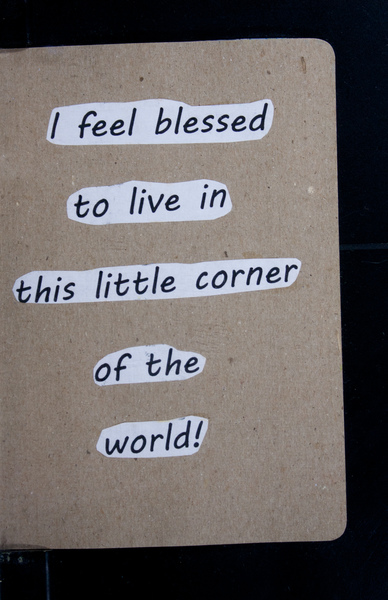 I feel blessed
to live in
this little corner
of the
world!